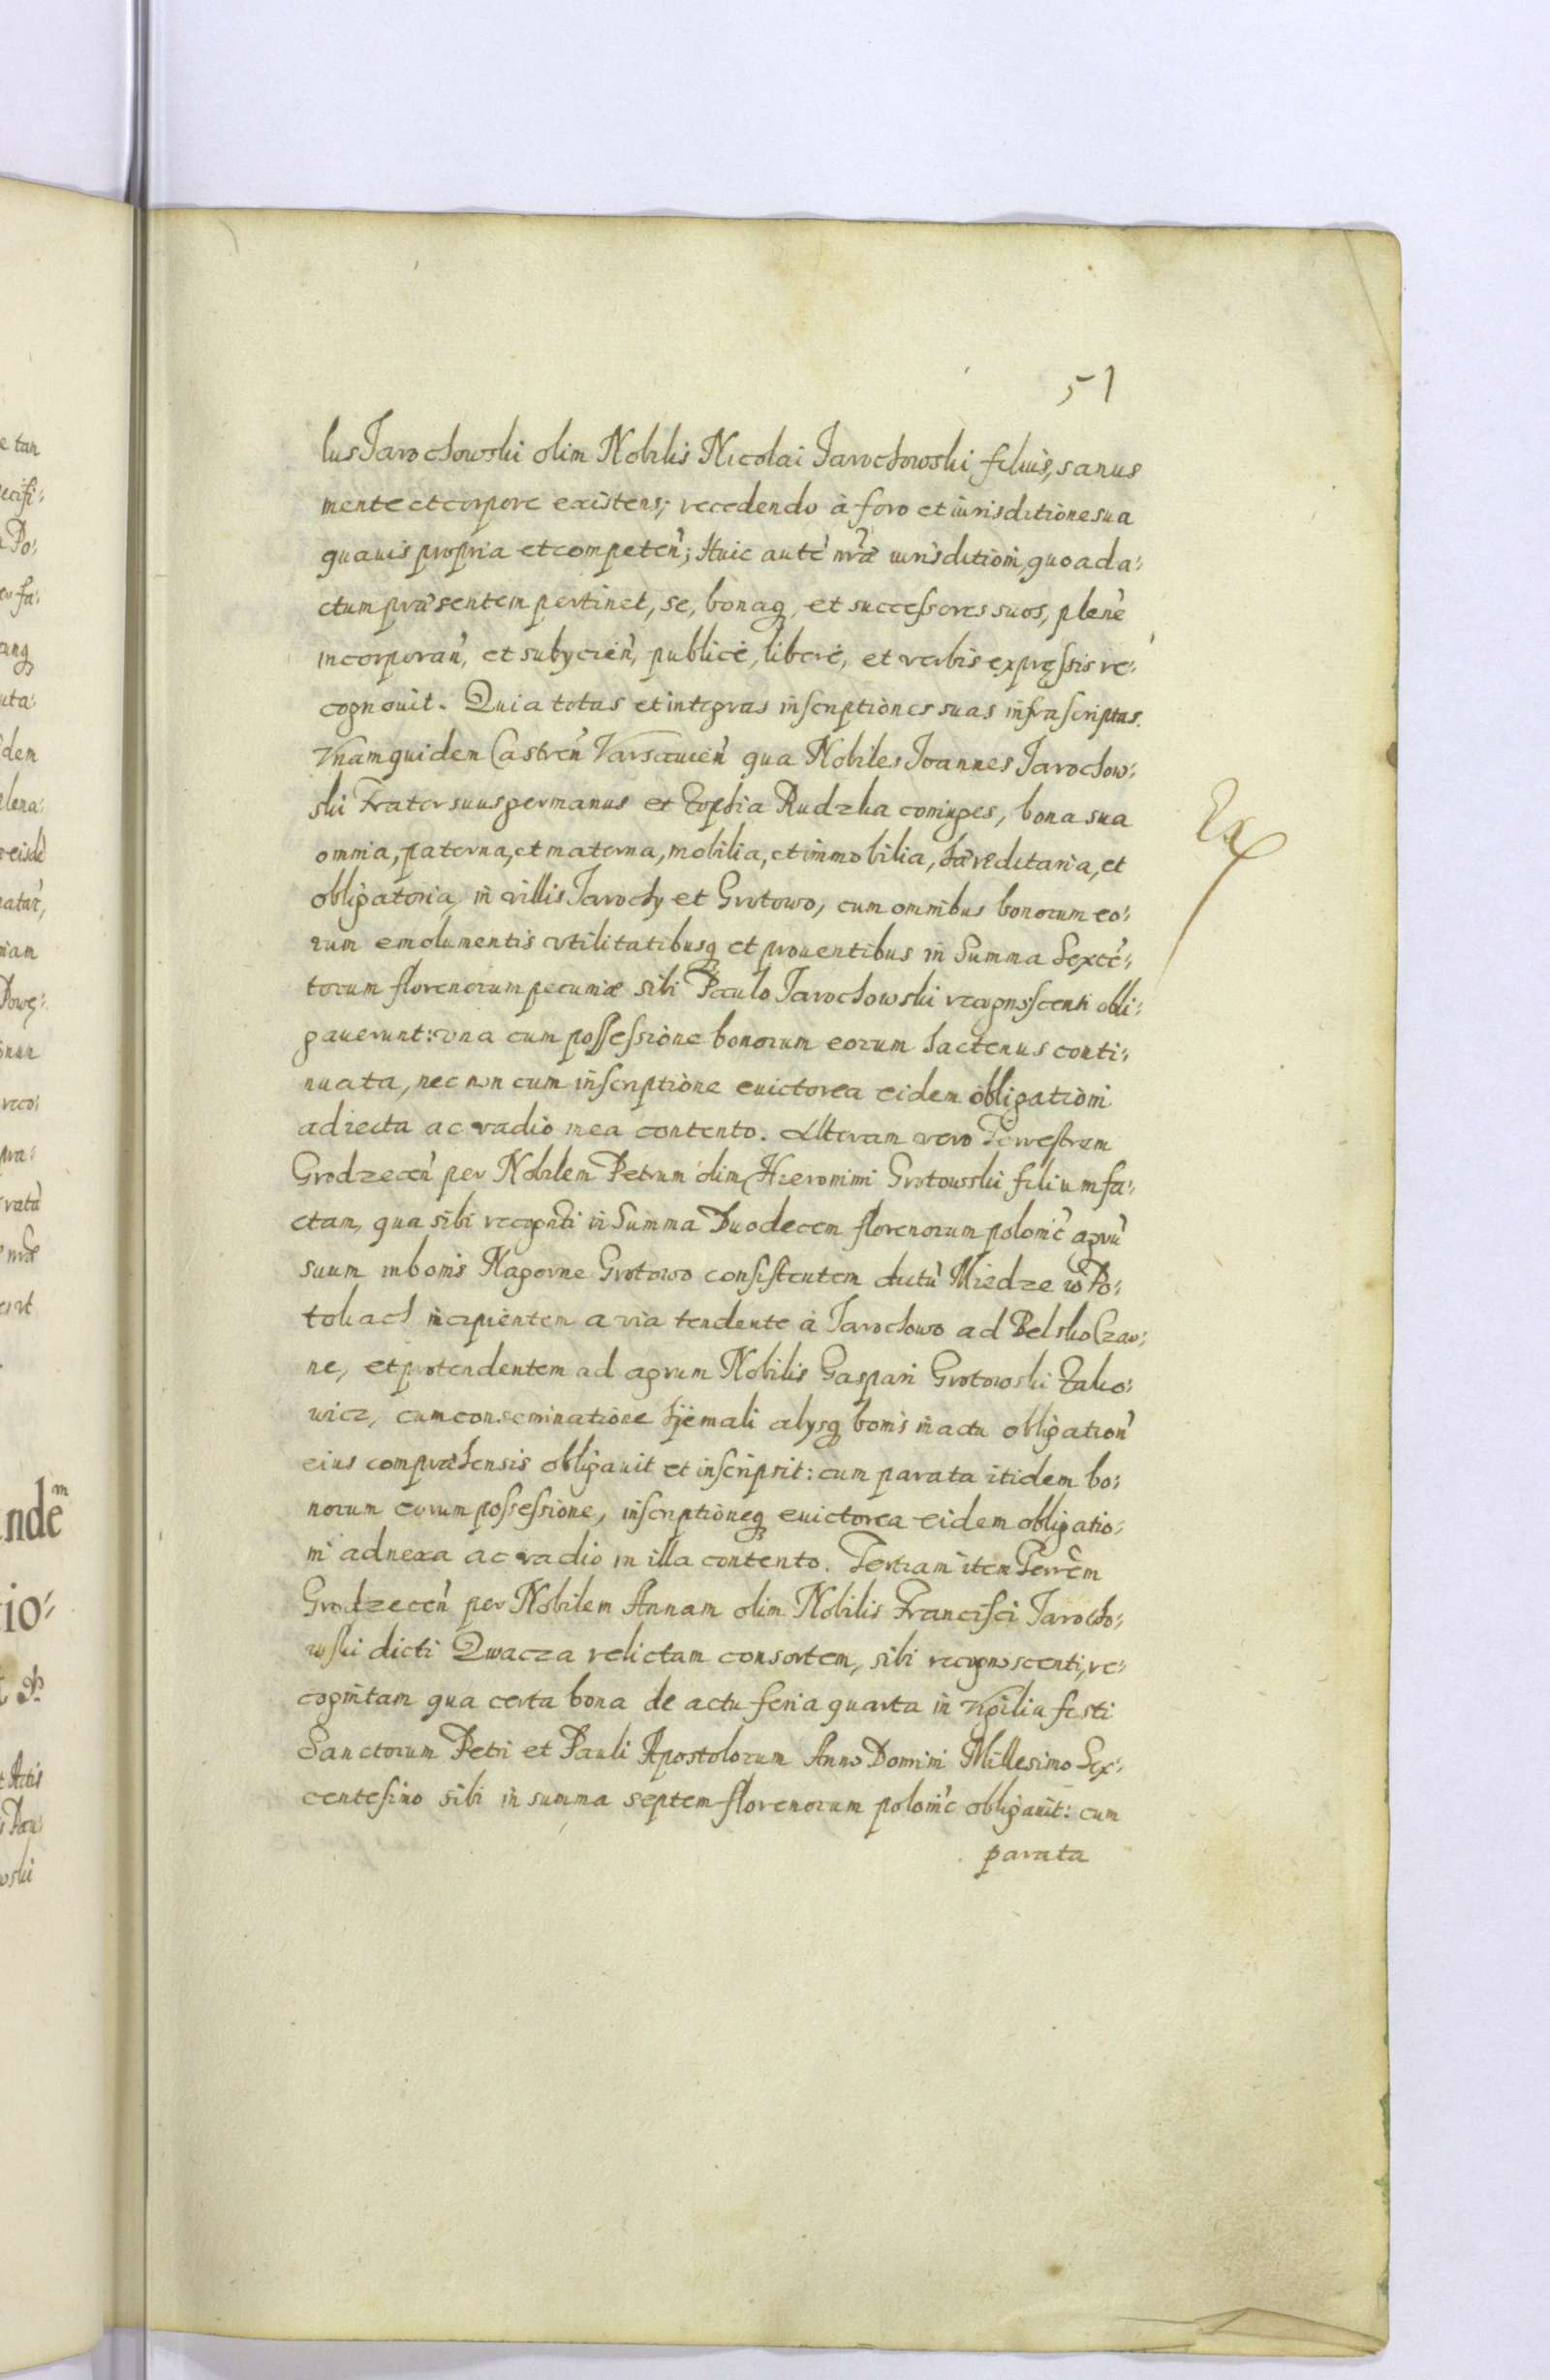 51
lus Jarochowski olim Nobilis Nicolai Jarochowski filius, sanus
mente et corpore existens; recedendo à foro et iurisditione sua
quauis propria et competeñ; Huic autẽ nr̃æ iurisditioni, quoad a:
ctum præsentem pertinet, se, bonaq, et successores suos, plenè
incorporañ, et subycieñ, publicè, liberè, et verbis expressis re:
cognouit. Quia totas et integras inscriptiones suas infrascriptas.
Vnam quidem Castreñ Varsauieñ qua Nobiles Joannes Jarochow:
ski Frater suus germanus et Zophia Rudzka coniuges, bona sua
omnia, paterna, et materna, mobilia, et immobilia, hæreditaria, et
obligatoria, in villis Jarochy et Grotowo, cum omnibus bonorum eo:
rum emolumentis vtilitatibusq et prouentibus in Summa Sexcẽ:
torum florenorum pecuniæ sibi Paulo Jarochowski recognoscenti obli:
gauerunt: vna cum possessione bonorum eorum hactenus conti:
nuata, nec non cum inscriptione euictorea eidem obligationi
adiecta ac vadio in ea contento. Alteram vero Terrestrem
Grodzeceñ per Nobilem Petrum olim Hieronimi Grotowski filium fa:
ctam, qua sibi recognti in Summa Duodecem florenorum poloniẽ agrũ
suum in bonis Nagorne Grotowo consistentem dictũ Miedze w Po:
tokach incipientem a via tendente à Jarochowo ad Belsko Czar:
ne, et protendentem ad agrum Nobilis Gaspari Grotowski Zako:
wicz, cum conseminatione hyemali alysq bonis in actu obligationẽ
eius compræhensis obligauit et inscripsit: cum parata itidem bo:
norum eorum possessione, inscriptioneq euictorea eidem obligatio:
ni adnexa ac vadio in illa contento. Tertiam item Terrẽm
Grodzeceñ per Nobilem Annam olim Nobilis Francisci Jarocho:
wski dicti Qwacza relictam consortem, sibi recognoscenti, re:
cognitam qua certa bona de actu feria quarta in vigilia festi
Sanctorum Petri et Pauli Apostolorum Anno Domini Millesimo Sex:
centesimo sibi in summa septem florenorum poloniẽ obligauit: cum
parata